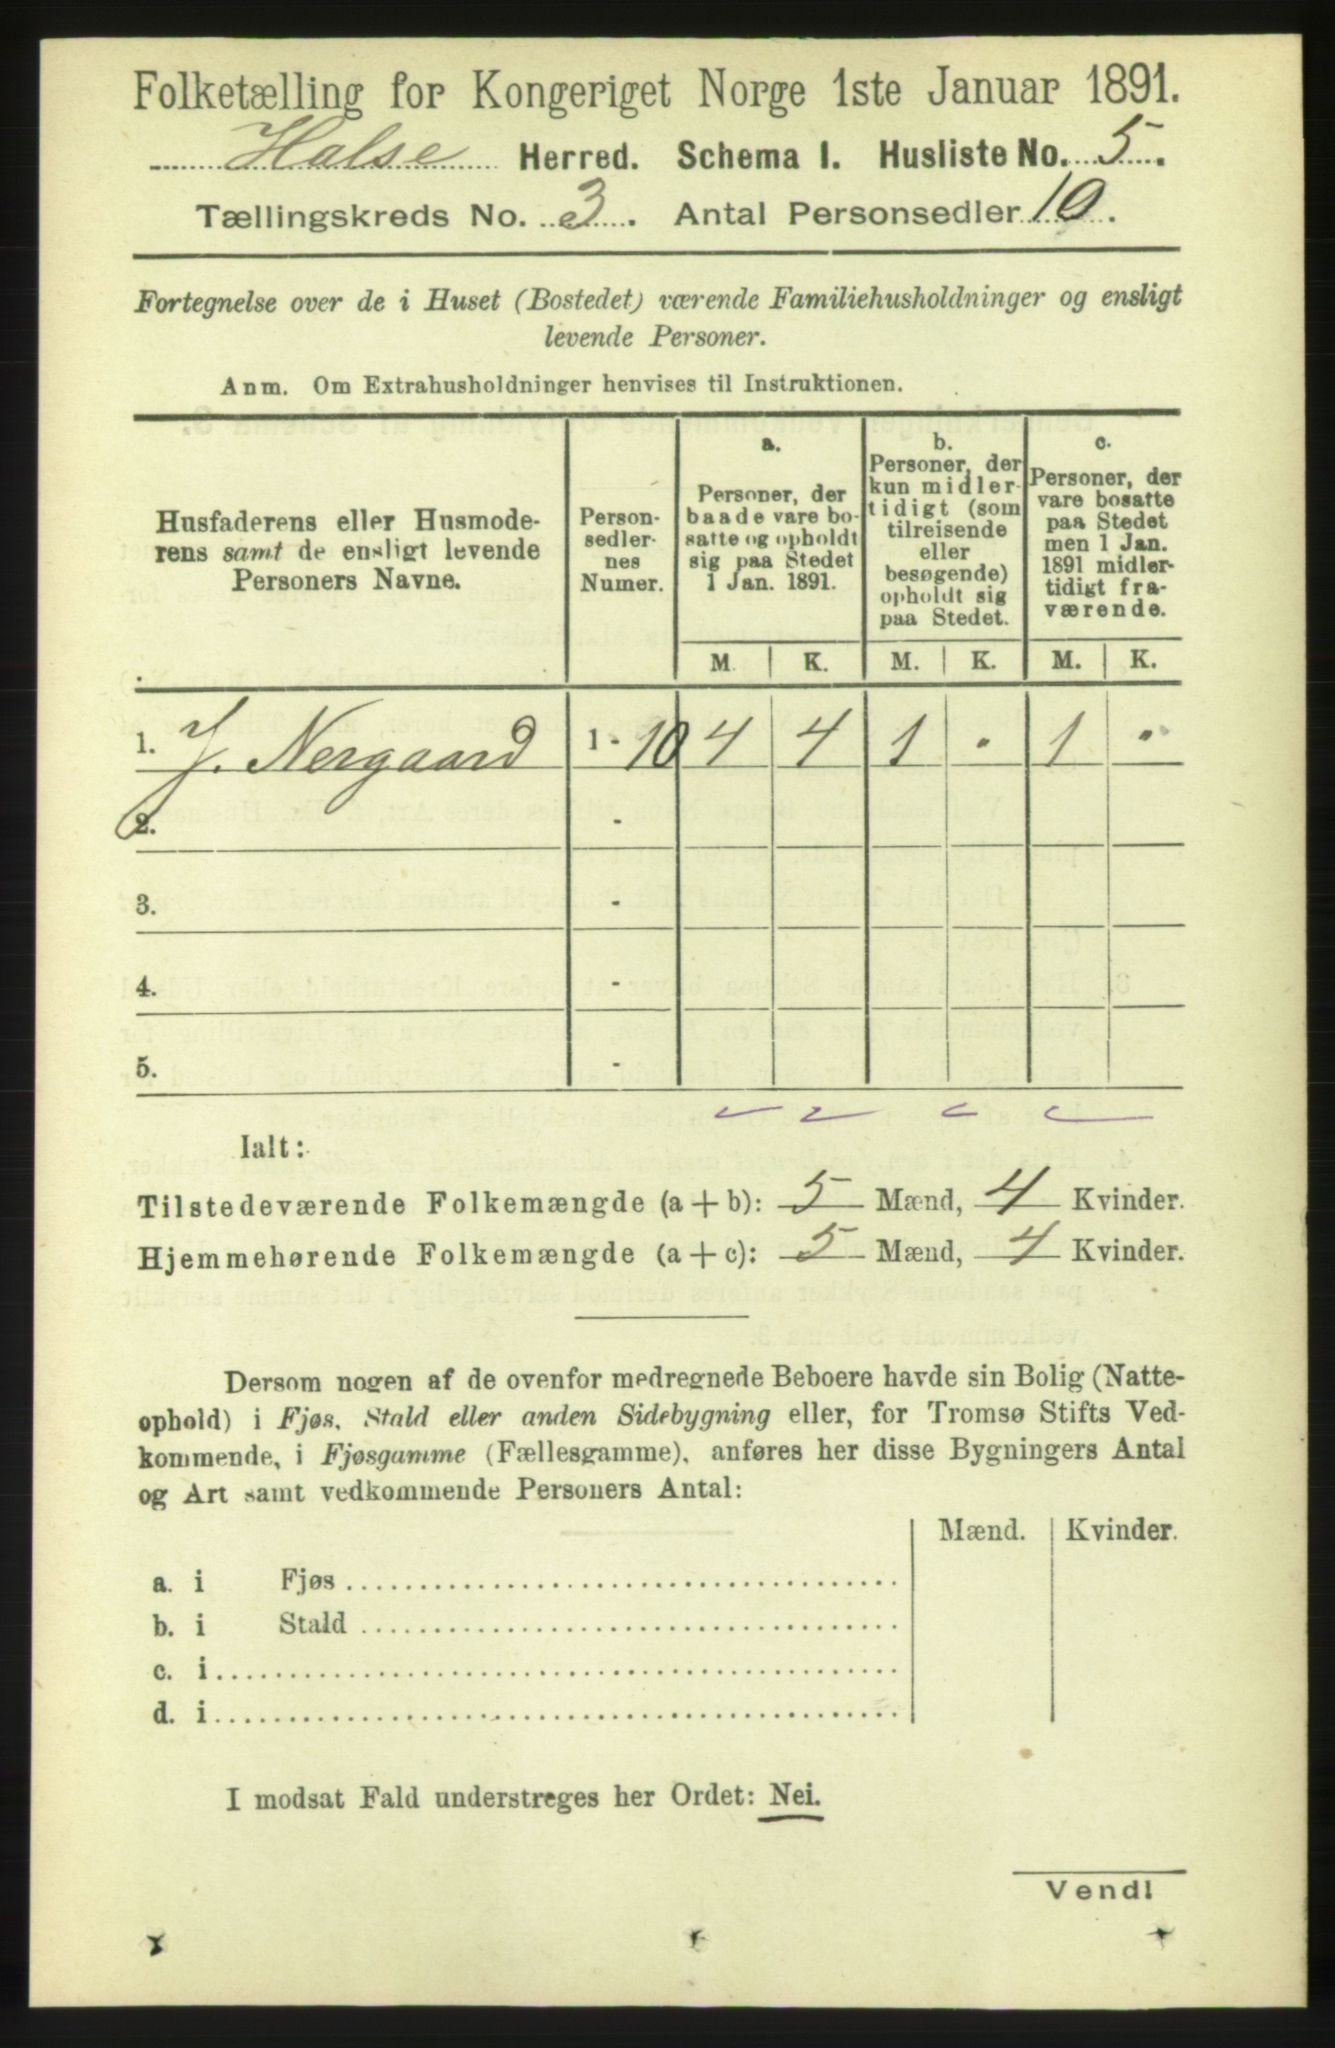 Folketælling for Kongeriget Norge 1ste Januar 1891.
Halse Herred. Schema I. Husliste No. 5.
Tællingskreds No. 3. Antal Personsedler 10.
Fortegnelse over de i Huset (Bostedet) værende Familiehusholdninger og ensligt
levende Personer.
Anm. Om Extrahusholdninger henvises til Instruktionen.
Husfaderens eller Husmode-
rens samt de ensligt levende
Personers Navne.
Person-
sedler-
nes
Numer.
a.
Personer, der
baade vare bo-
satte og opholdt
sig paa Stedet
1 Jan. 1891.
b.
Personer, der
kun midler-
tidigt (som
tilreisende
eller
besøgende)
opholdt sig
paa Stedet.
c.
Personer, der
vare bosatte
paa Stedet
men 1 Jan.
1891 midler-
tidigt fra-
værende.
M. K. M. K. M. K.
1. J. Nergaard 1 - 10 4 4 1 · 1 ·
2. -
3. -
4. -
5. -
Ialt:
Tilstedeværende Folkemængde (a + b): 5 Mænd, 4 Kvinder.
Hjemmehørende Folkemængde (a + c): 5 Mænd, 4 Kvinder.
Dersom nogen af de ovenfor medregnede Beboere havde sin Bolig (Natte-
ophold) i Fjøs, Stald eller anden Sidebygning eller, for Tromsø Stifts Ved-
kommende, i Fjøsgamme (Fællesgamme), anføres her disse Bygningers Antal
og Art samt vedkommende Personers Antal:
Mænd. Kvinder.
a. i Fjøs
b. i Stald
c. i
d. i
I modsat Fald understreges her Ordet: Nei.
Vend!